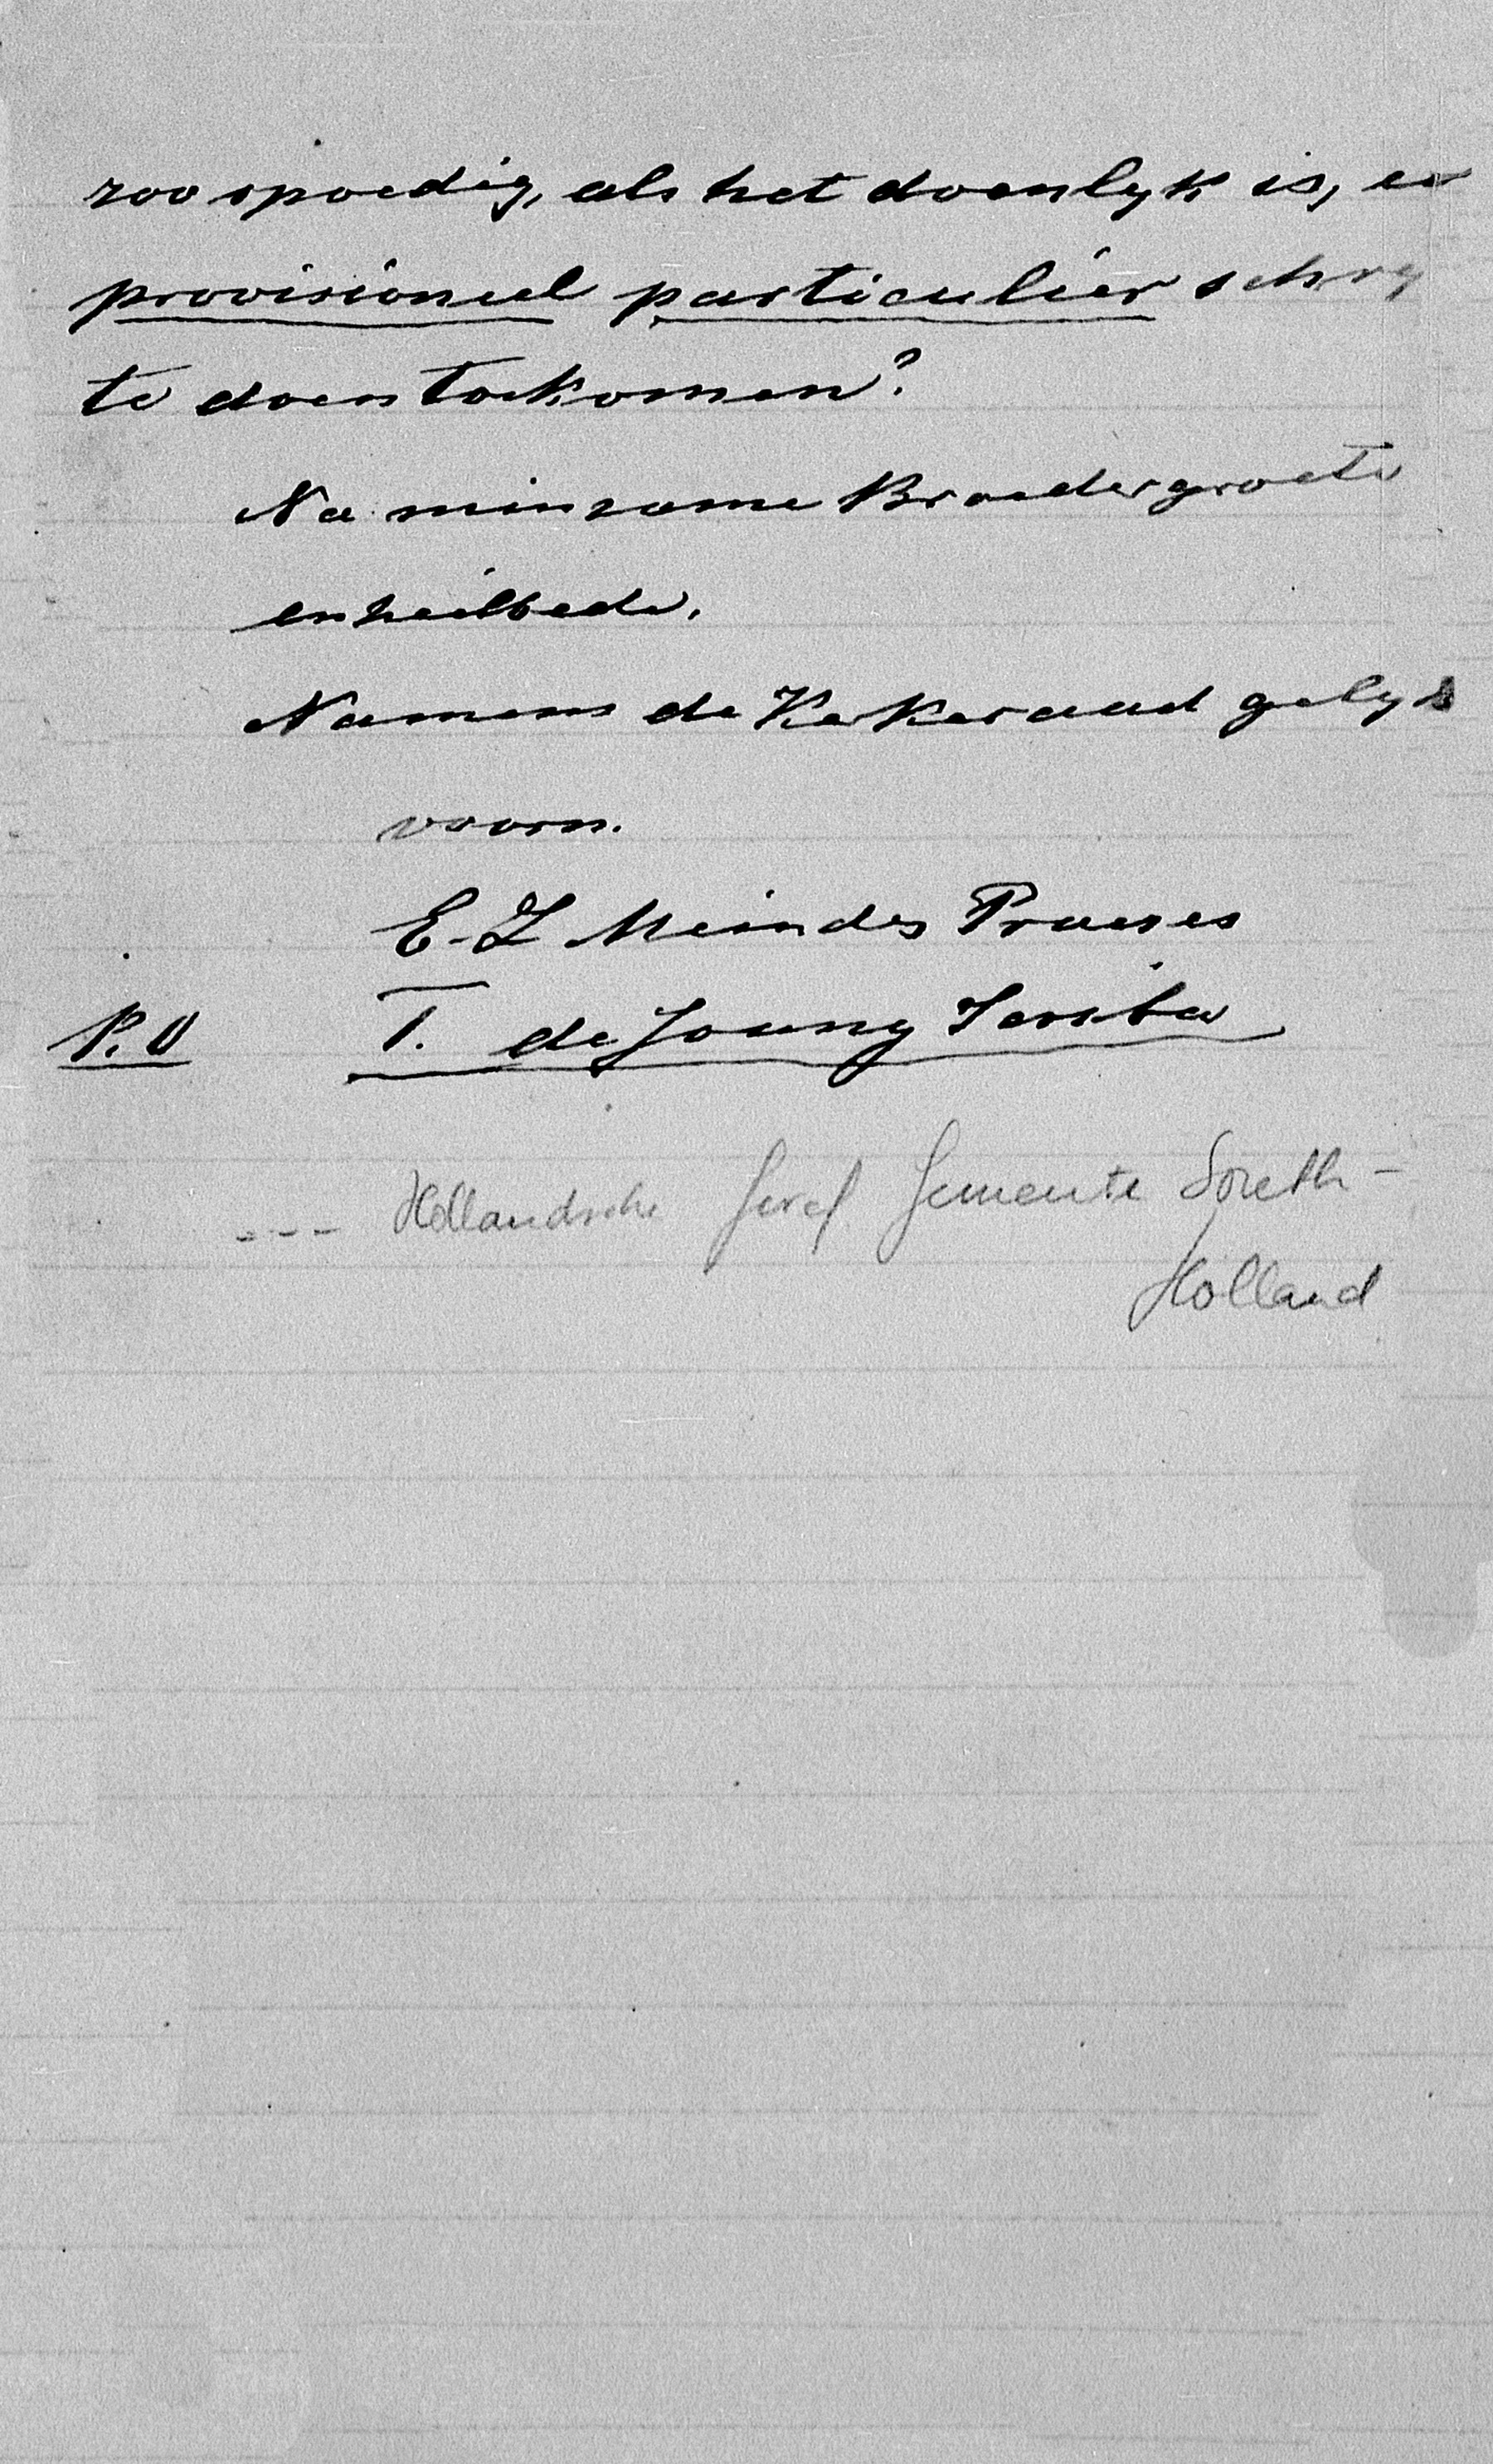 zoo spoedig, als het doenlyk is, ee
provisioneel particulier schry
te doen toekomen?
Na minzame Broedergroete
en heilbede.
Namens de Kerkeraad gelyk
voorn.
E. L Meindes Praeses
P. O T. de Joung Scriba
--- Hollandsche Geref Gemeente South-
Holland